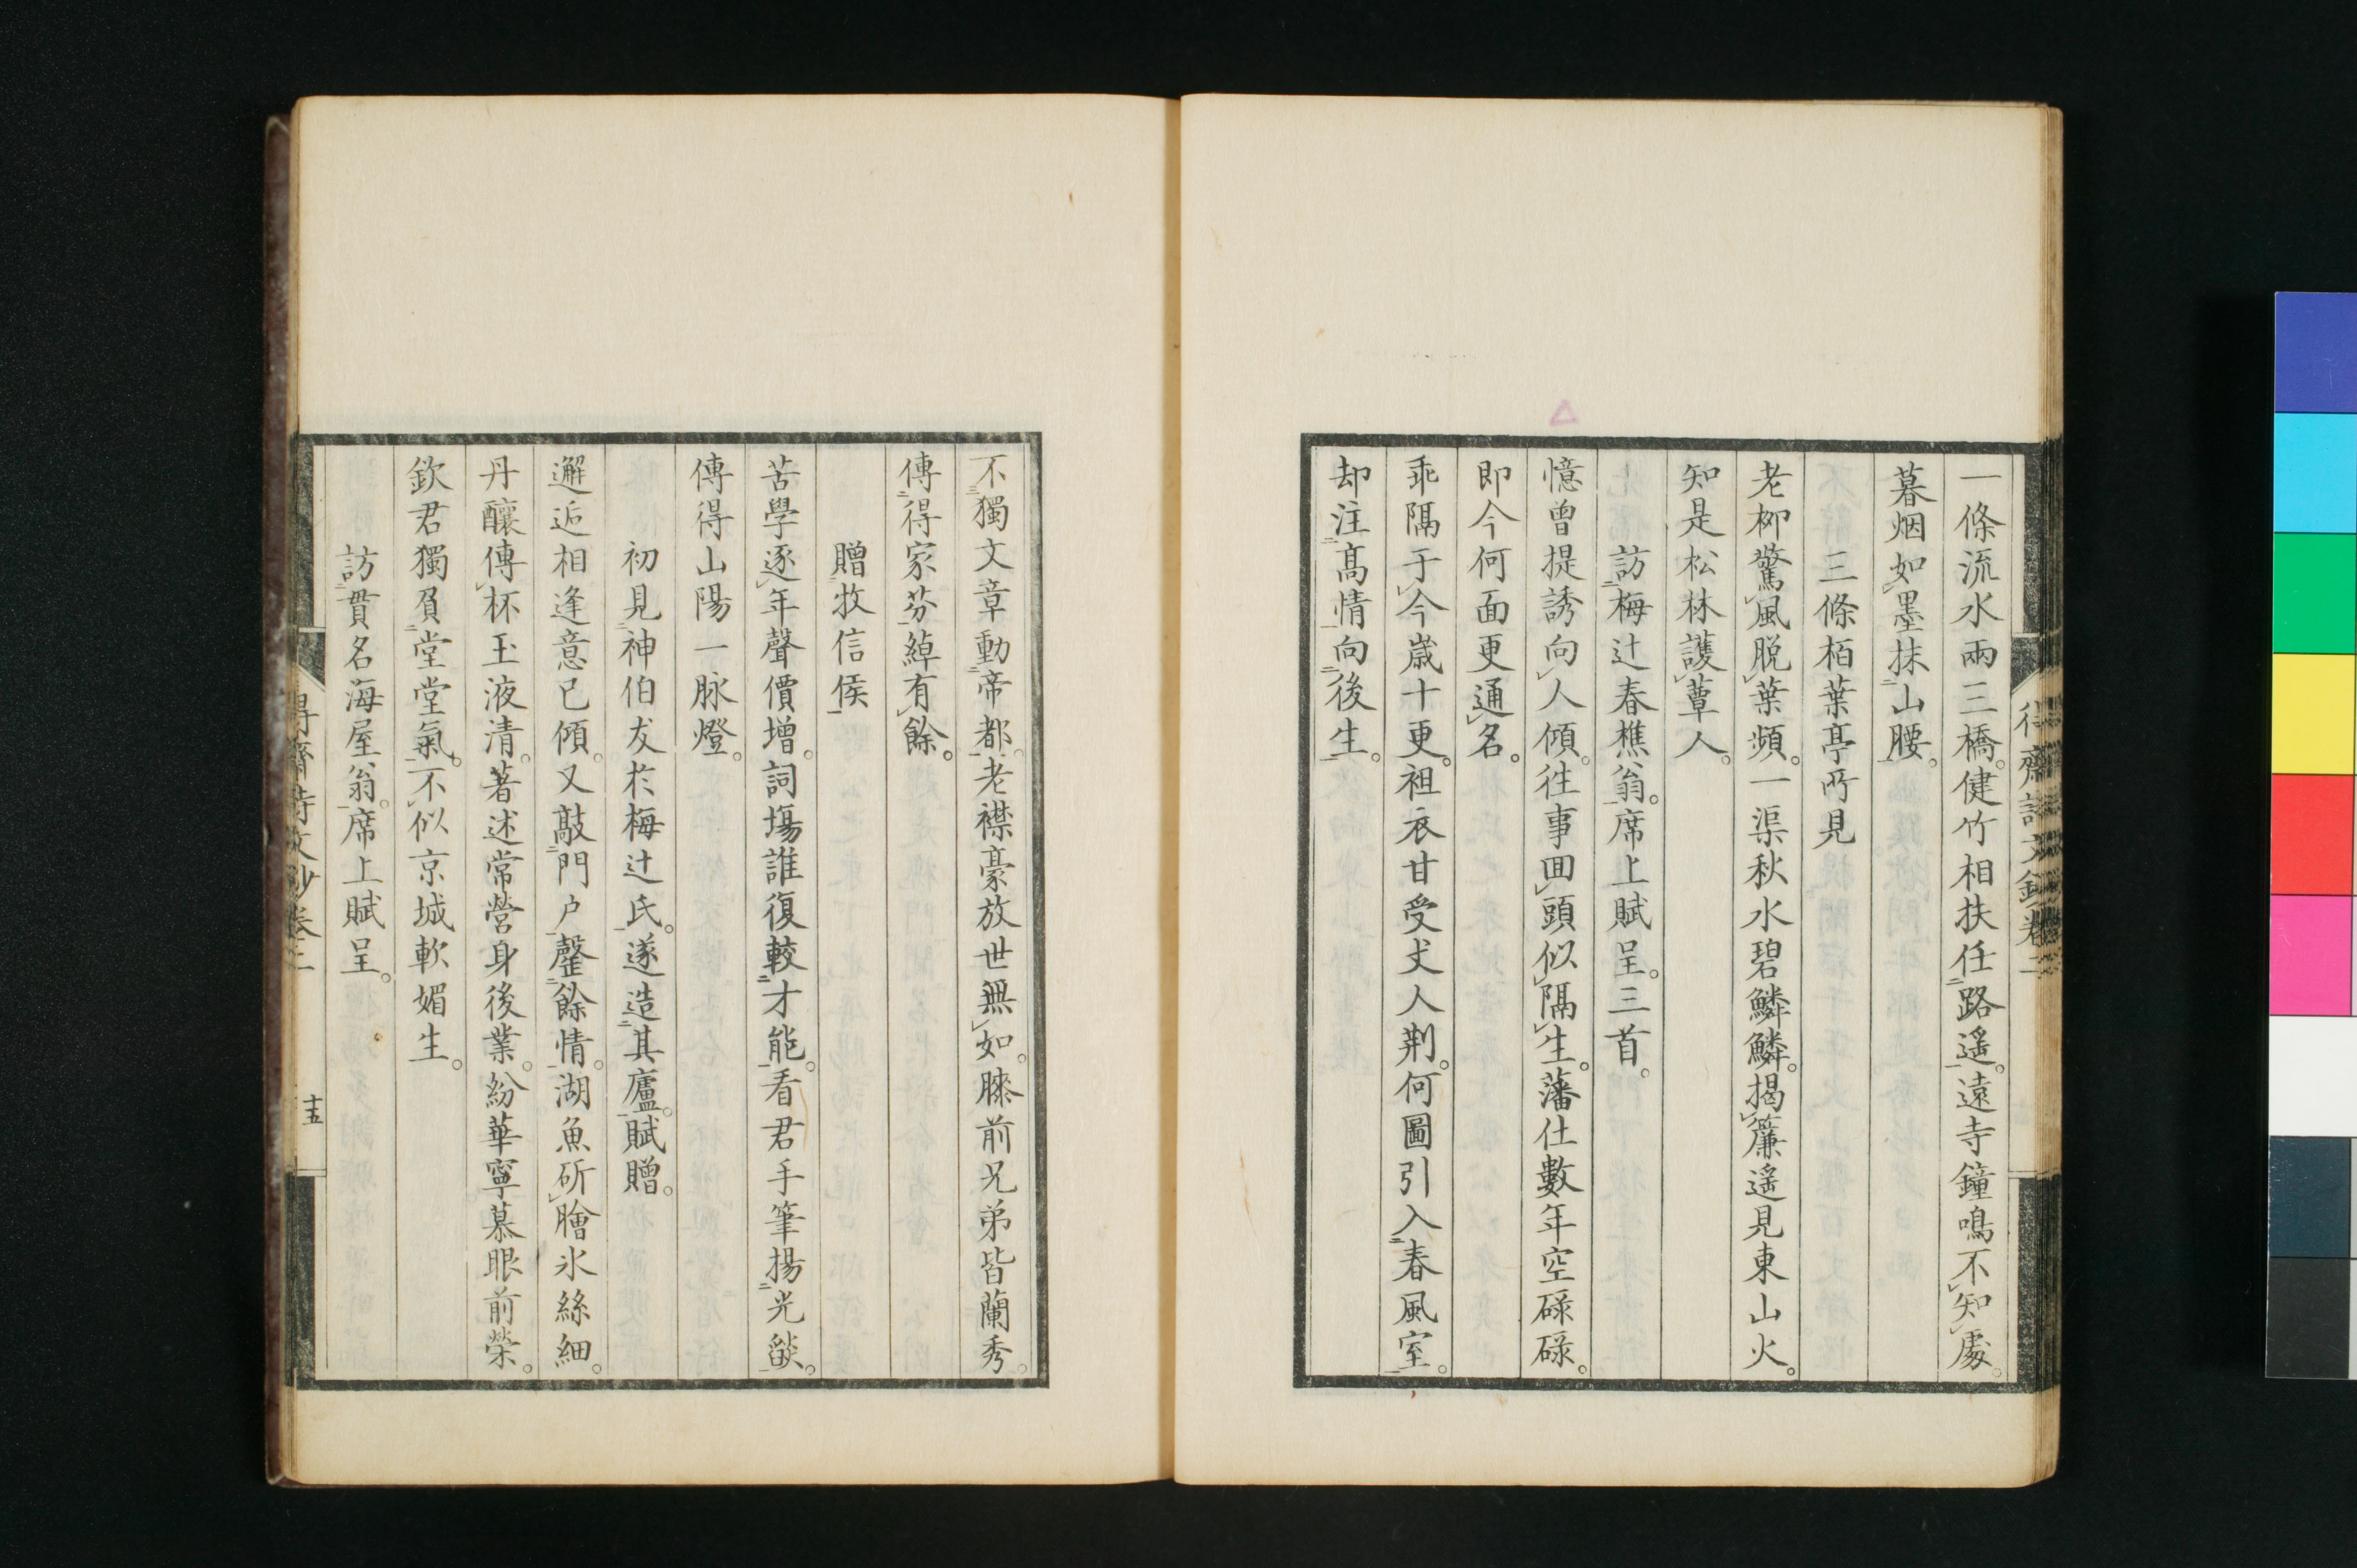 一條流水兩三橋。健竹相扶任路遥。遠寺鐘鳴不知處。
暮烟如墨抹山腰。
三條栢葉亭所見
老柳驚風脱葉頻。一渠秋水碧鱗鱗。揭簾遥見東山火。
知是松林護蕈人。
訪梅辻春樵翁。席上賦呈。三首。
憶曾提誘向人傾。往事囬頭似隔生。藩仕數年空碌碌。
即今何面更通名。
乖隔于今歳十更。袒衣甘受丈人荆。何圖引入春風室。
却注髙情向後生。
不獨文章動帝都。老襟豪放世無如。膝前兄弟皆蘭秀。
傳得家芬綽有餘。
贈牧信侯
苦學逐年聲價增。詞塲誰復較才能。看君手筆揚光燄。
傳得山陽一脉燈。
初見神伯友於梅辻氏。遂造其廬。賦贈。
邂逅相逢意已傾。又敲門户罄餘情。湖魚斫膾氷絲細。
丹釀傳杯玉液清。著述常營身後業。紛華寧慕眼前榮。
欽君獨負堂堂氣。不似京城軟媚生。
訪貫名海屋翁。席上賦呈。
得齋詩文鈔卷二
十五